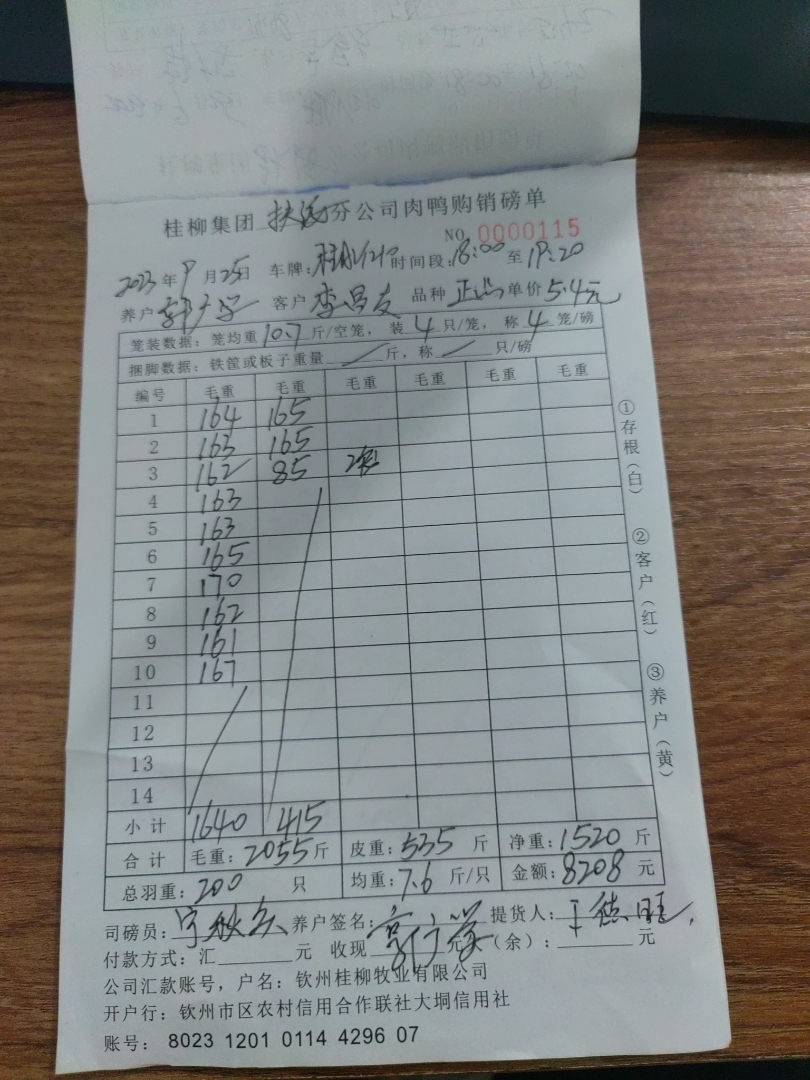 桂柳集团 分公司肉鸭购销磅单
NO 0000115
2023年9月25日 车牌: 时间段:18:00至19:20
养户 客户 李昌友 品种 单价5.4元
笼装数据:笼均重10.7斤/空笼,装4只/笼,称4笼/磅
捆脚数据:铁筐或板子重量 斤,称 只/磅
编号 毛重 毛重 毛重 毛重 毛重 毛重
1 164 165
2 163 165
3 162 85
4 163
5 163
6 165
7 170
8 162
9 161
10 167
11
12
13
14
小计 1640 415
合计 毛重:2055斤 皮重:535斤 净重:1520斤
总羽重:200只 均重:7.6斤/只 金额:8208元
司磅员: 养户签名: 提货人:王德旺
付款方式:汇 元 收现 元 (余): 元
公司汇款账号,户名:钦州桂柳牧业有限公司
开户行:钦州市区农村信用合作联社大垌信用社
账号: 8023 1201 0114 4296 07
①存根(白)
②客户(红)
③养户(黄)